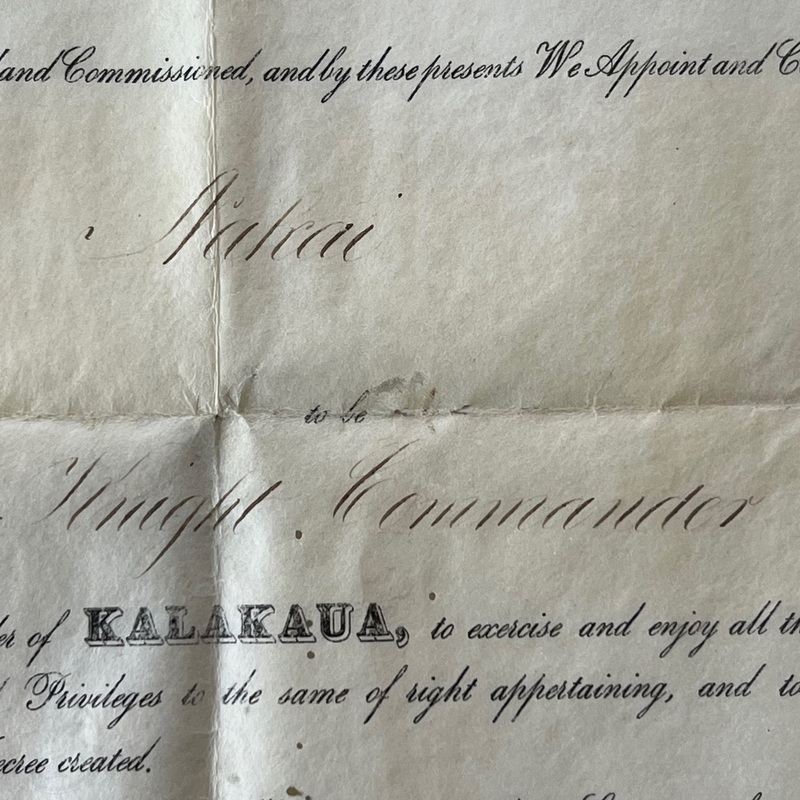 and Commissioned, and by these presents We Appoint and
Nakai
to be
Knight Commander
of KALAKAUA, to exercise and enjoy all
Privileges to the same of right appertaining, and to
created.